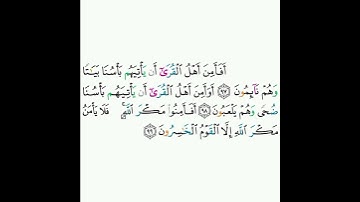 أَفَأَمِنَ أَهْلُ الْقُرَىٰٓ أَن يَأْتِيَهُم بَأْسُنَا بَيَٰتًا
وَهُمْ نَآئِمُونَ ۝٩٧ أَوَأَمِنَ أَهْلُ الْقُرَىٰٓ أَن يَأْتِيَهُم بَأْسُنَا
ضُحًى وَهُمْ يَلْعَبُونَ ۝٩٨ أَفَأَمِنُوا۟ مَكْرَ اللَّهِ ۚ فَلَا يَأْمَنُ
مَكْرَ اللَّهِ إِلَّا الْقَوْمُ الْخَٰسِرُونَ ۝٩٩